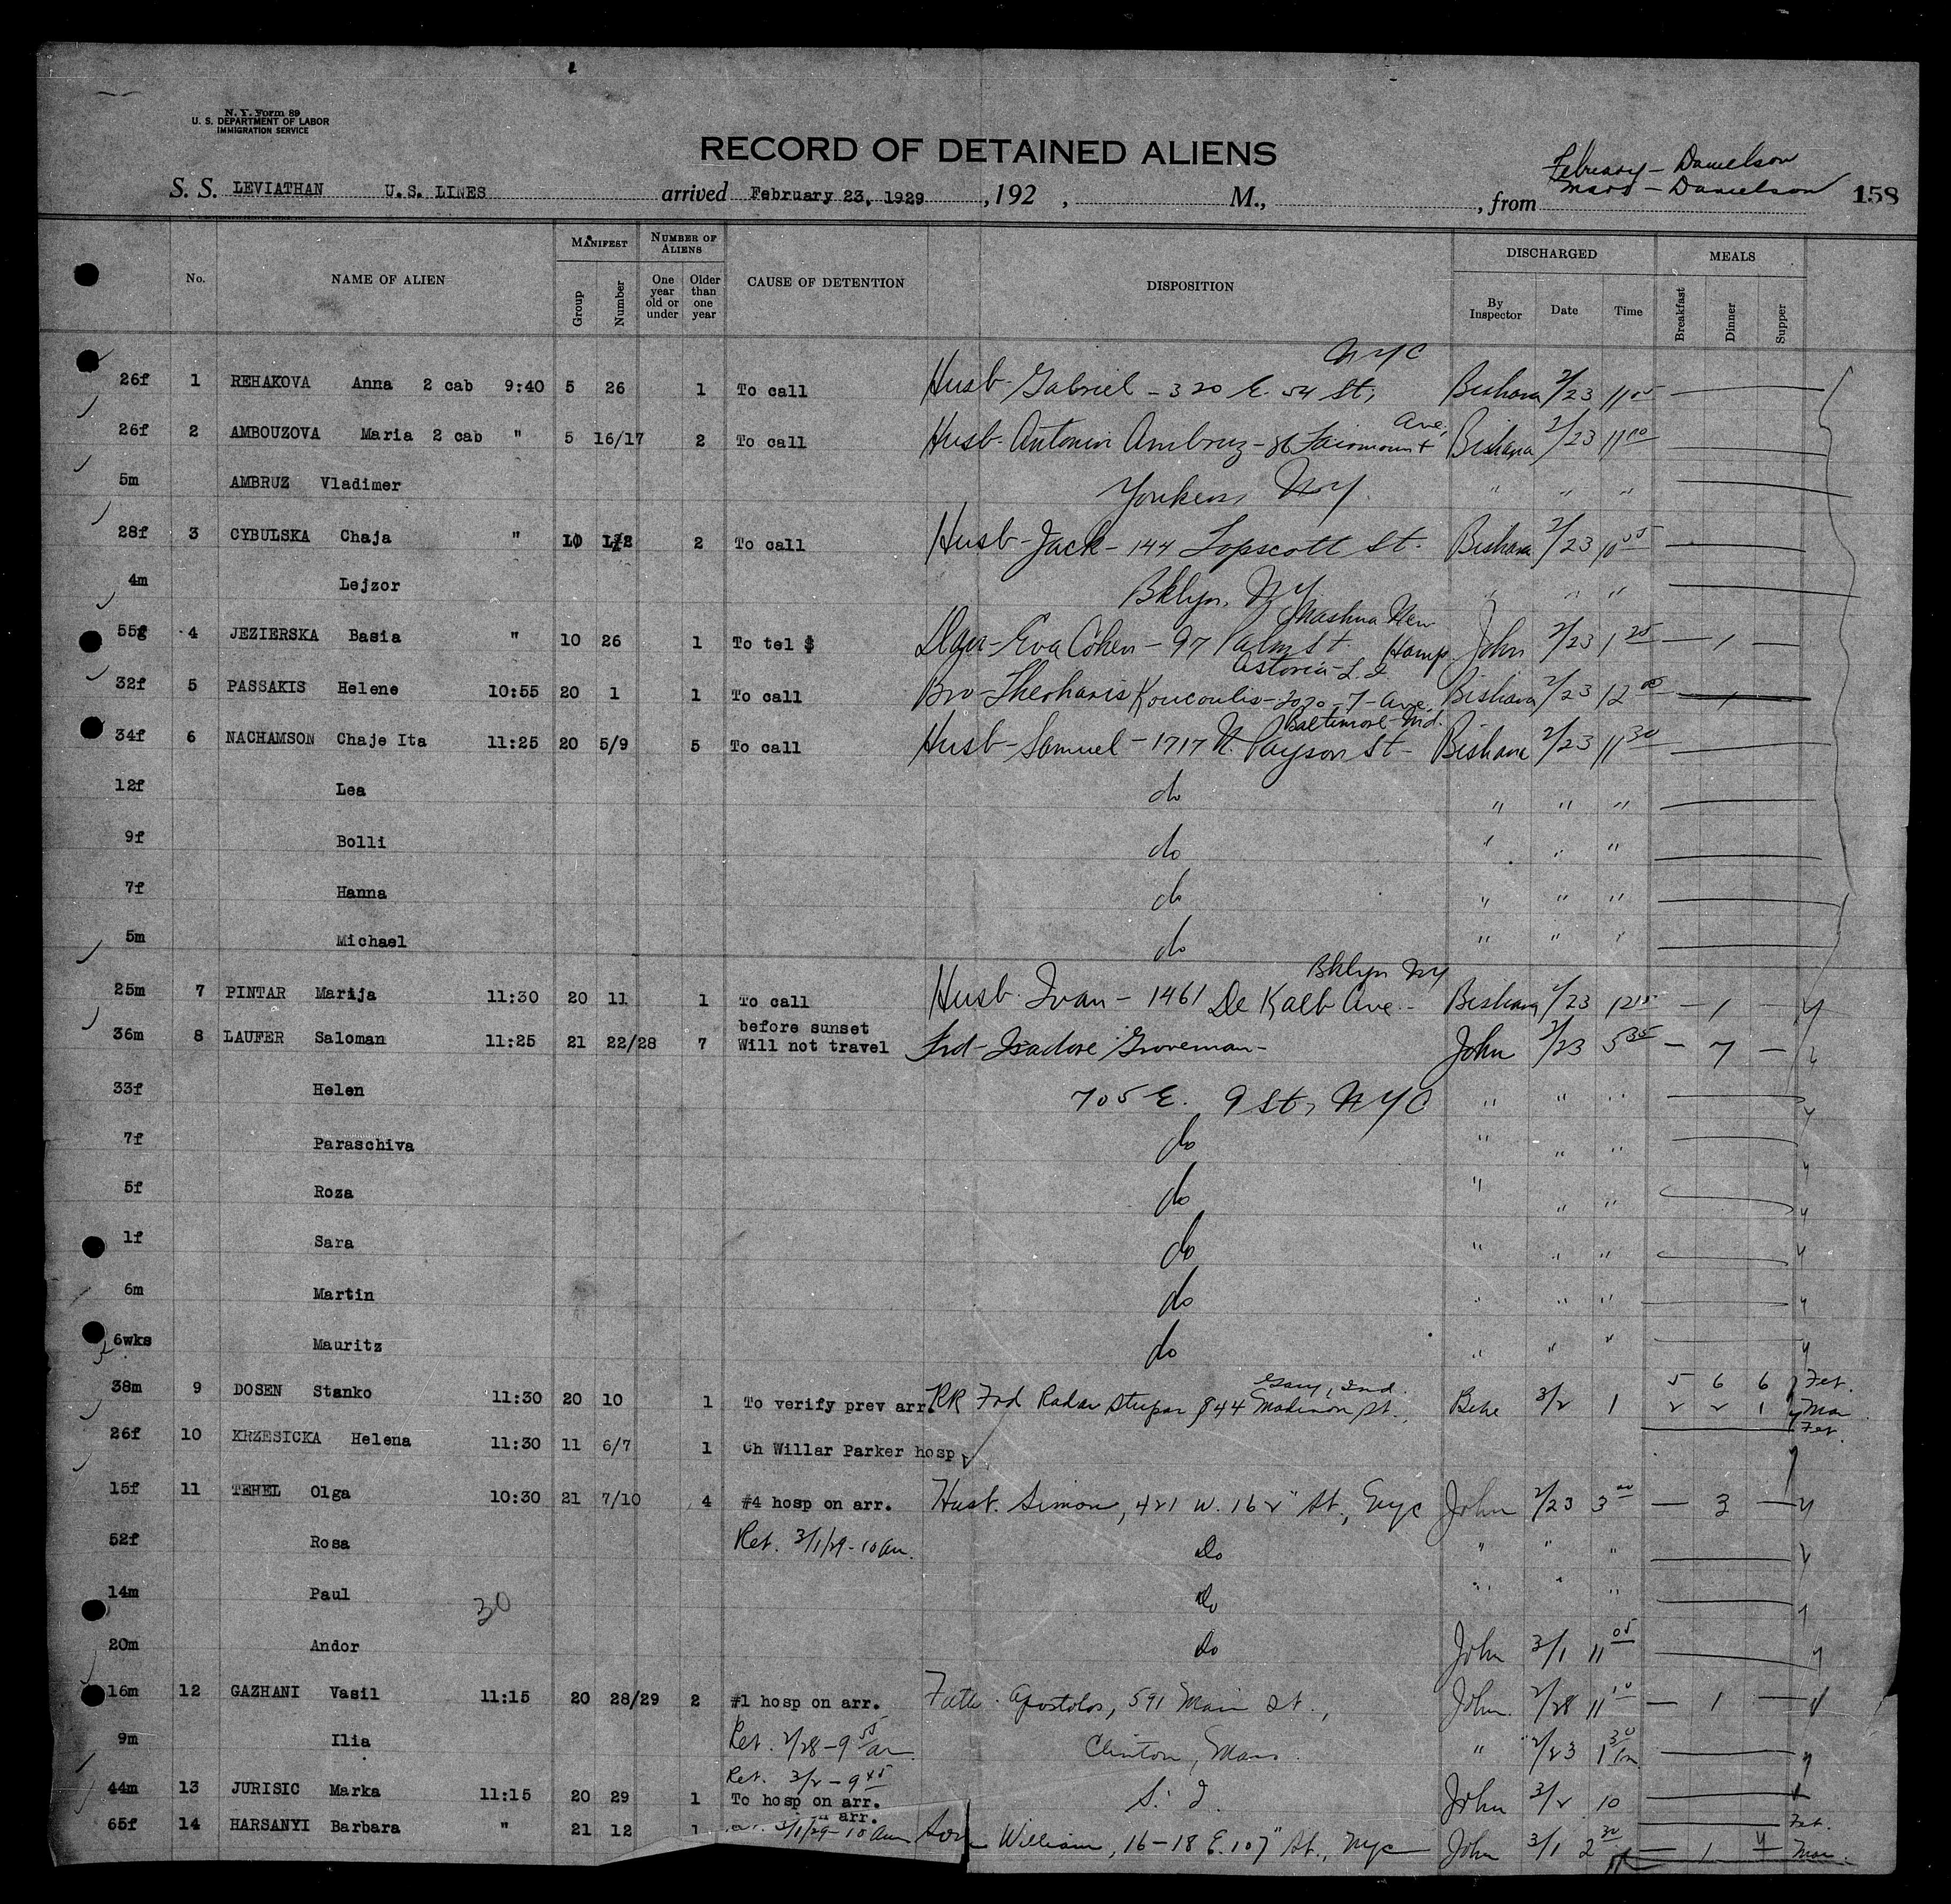 N. Y. Form 89
U. S. DEPARTMENT OF LABOR
IMMIGRATION SERVICE
RECORD OF DETAINED ALIENS
February - Danielson
Mard - Danielson
S. S. LEVIATHAN U.S. LINES arrived February 23, 1929, 192 , M., , from 158
No. NAME OF ALIEN MANIFEST NUMBER OF ALIENS CAUSE OF DETENTION DISPOSITION DISCHARGED MEALS
Group Number One year old or under Older than one year By Inspector Date Time Breakfast Dinner Supper
NYC
26f 1 REHAKOVA Anna 2 cab 9:40 5 26 1 To call Husb- Gabriel - 320 E. 54 St, Bishara 2/23 11 05
Ave,
26f 2 AMBOUZOVA Maria 2 cab " 5 16/17 2 To call Husb- Antonin Ambruz - 86 Fairmount Bishara 2/23 11 00
5m AMBRUZ Vladimer Yonkers, N.Y. " " "
28f 3 CYBULSKA Chaja " 10 2 To call Husb- Jack - 144 Lopscott St. Bishara 2/23 10 55
4m Lejzor Bklyn, NY " " "
Nashua New
55f 4 JEZIERSKA Basia " 10 26 1 To tel $ Dau- Eva Cohen - 97 Palm St. Hamp John 2/23 1 25 - 1 -
Astoria - L.I.
32f 5 PASSAKIS Helene 10:55 20 1 1 To call Bro- Theoharis Koucoulis - 2020 - 7 - Ave. Bishara 2/23 12 00 1
Baltimore - Md.
34f 6 NACHAMSON Chaje Ita 11:25 20 5/9 5 To call Husb- Samuel - 1717 N. Payson St - Bishara 2/23 11 30
12f Lea do " " "
9f Bolli do " " "
7f Hanna do " " "
5m Michael do " " "
Bklyn NY
25m 7 PINTAR Marija 11:30 20 11 1 To call Husb. Ivan - 1461 De Kalb Ave - Bishara 2/23 12 15 - 1 -
before sunset
36m 8 LAUFER Saloman 11:25 21 22/28 7 Will not travel Frd- Isadore Groveman - John 2/23 5 35 - 7 -
33f Helen 705 E. 9 St, NYC " " "
7f Paraschiva do " " "
5f Roza do " " "
1f Sara do " " "
6m Martin do " " "
6wks Mauritz do " " "
Gary, Ind. 5 6 6 Feb.
38m 9 DOSEN Stanko 11:30 20 10 1 To verify prev arr. RR Frd Radar Stupar 844 Madison St., Bebe 3/2 1 2 2 1 Mar
Feb.
26f 10 KRZESICKA Helena 11:30 11 6/7 1 Ch Willar Parker hosp
15f 11 TEHEL Olga 10:30 21 7/10 4 #4 hosp on arr. Husb. Simon, 421 W. 162" St., Nyc John 2/23 3 00 - 3 -
52f Rosa Ret. 3/1/29 - 10 am. Do " " "
14m Paul Do " " "
30
20m Andor Do John 3/1 11 05
16m 12 GAZHANI Vasil 11:15 20 28/29 2 #1 hosp on arr. Fath. Apostolos, 591 Main St., John 2/28 11 10 - 1 -
9m Ilia Ret. 2/28 - 9 55 am Clinton, Mass. " 2/23 1 30
Ret. 3/2 - 9 45
44m 13 JURISIC Marka 11:15 20 29 1 To hosp on arr. S. I. John 3/2 10
on arr. Feb.
65f 14 HARSANYI Barbara " 21 12 1 3/1/29 - 10 am Son William, 16-18 E. 107" St., Nyc John 3/1 2 30 - 1 - Mar.